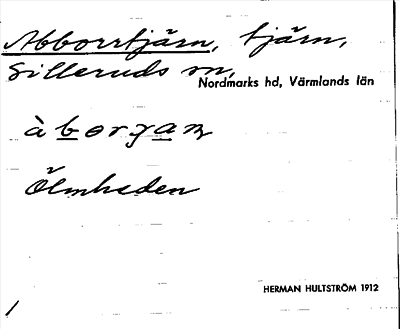 Abborrtjärn, tjärn,
Silleruds sn,
Nordmarks hd, Värmlands län
Ölmheden
HERMAN HULTSTRÖM 1912